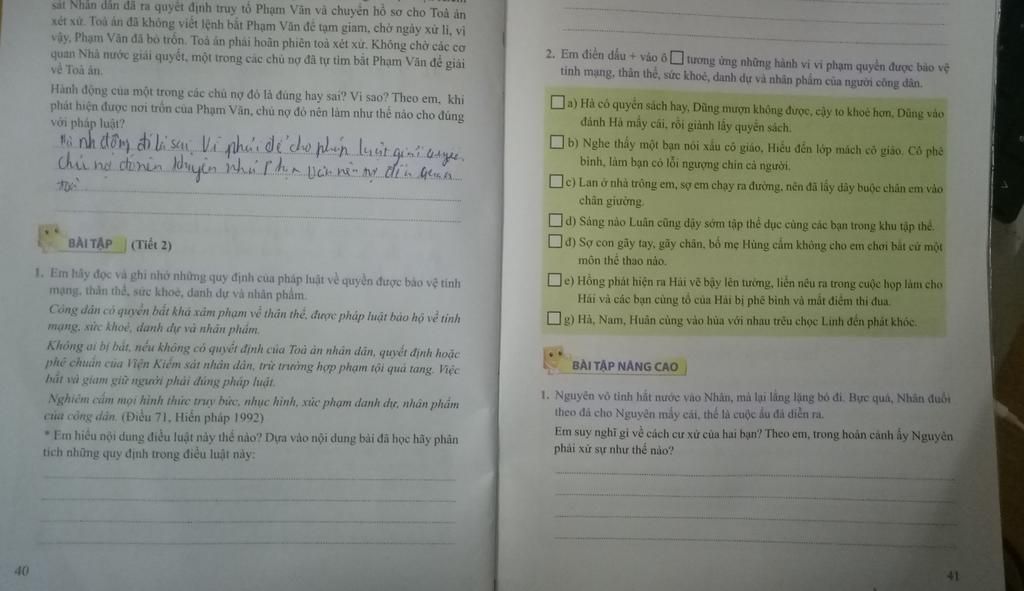 sát Nhân dân đã ra quyết định truy tố Phạm Văn và chuyển hồ sơ cho Toà án
xét xử. Toà án đã không viết lệnh bắt Phạm Văn để tạm giam, chờ ngày xử lí, vì
vậy, Phạm Văn đã bỏ trốn. Toà án phải hoãn phiên toà xét xử. Không chờ các cơ
quan Nhà nước giải quyết, một trong các chủ nợ đã tự tìm bắt Phạm Văn để giải
về Toà án.
Hành động của một trong các chủ nợ đó là đúng hay sai? Vì sao? Theo em, khi
phát hiện được nơi trốn của Phạm Văn, chủ nợ đó nên làm như thế nào cho đúng
với pháp luật?
Hành động đó là sai. Vì phải để cho pháp luật giải quyết
chủ nợ đó nên khuyên nhủ
BÀI TẬP (Tiết 2)
1. Em hãy đọc và ghi nhớ những quy định của pháp luật về quyền được bảo vệ tính
mạng, thân thể, sức khoẻ, danh dự và nhân phẩm.
Công dân có quyền bất khả xâm phạm về thân thể, được pháp luật bảo hộ về tính
mạng, sức khoẻ, danh dự và nhân phẩm.
Không ai bị bắt, nếu không có quyết định của Toà án nhân dân, quyết định hoặc
phê chuẩn của Viện Kiểm sát nhân dân, trừ trường hợp phạm tội quả tang. Việc
bắt và giam giữ người phải đúng pháp luật.
Nghiêm cấm mọi hình thức truy bức, nhục hình, xúc phạm danh dự, nhân phẩm
của công dân. (Điều 71, Hiến pháp 1992)
* Em hiểu nội dung điều luật này thế nào? Dựa vào nội dung bài đã học hãy phân
tích những quy định trong điều luật này:
40
2. Em điền dấu + vào ô tương ứng những hành vi vi phạm quyền được bảo vệ
tính mạng, thân thể, sức khoẻ, danh dự và nhân phẩm của người công dân.
a) Hà có quyển sách hay, Dũng mượn không được, cậy to khoẻ hơn, Dũng vào
đánh Hà mấy cái, rồi giành lấy quyển sách.
b) Nghe thấy một bạn nói xấu cô giáo, Hiếu đến lớp mách cô giáo. Cô phê
bình, làm bạn có lỗi ngượng chín cả người.
c) Lan ở nhà trông em, sợ em chạy ra đường, nên đã lấy dây buộc chân em vào
chân giường.
d) Sáng nào Luân cũng dậy sớm tập thể dục cùng các bạn trong khu tập thể.
đ) Sợ con gãy tay, gãy chân, bố mẹ Hùng cấm không cho em chơi bất cứ một
môn thể thao nào.
e) Hồng phát hiện ra Hải vẽ bậy lên tường, liền nêu ra trong cuộc họp làm cho
Hải và các bạn cùng tổ của Hải bị phê bình và mất điểm thi đua.
g) Hà, Nam, Huân cùng vào hùa với nhau trêu chọc Linh đến phát khóc.
BÀI TẬP NÂNG CAO
1. Nguyên vô tình hắt nước vào Nhân, mà lại lẳng lặng bỏ đi. Bực quá, Nhân đuổi
theo đá cho Nguyên mấy cái, thế là cuộc ẩu đả diễn ra.
Em suy nghĩ gì về cách cư xử của hai bạn? Theo em, trong hoàn cảnh ấy Nguyên
phải xử sự như thế nào?
41